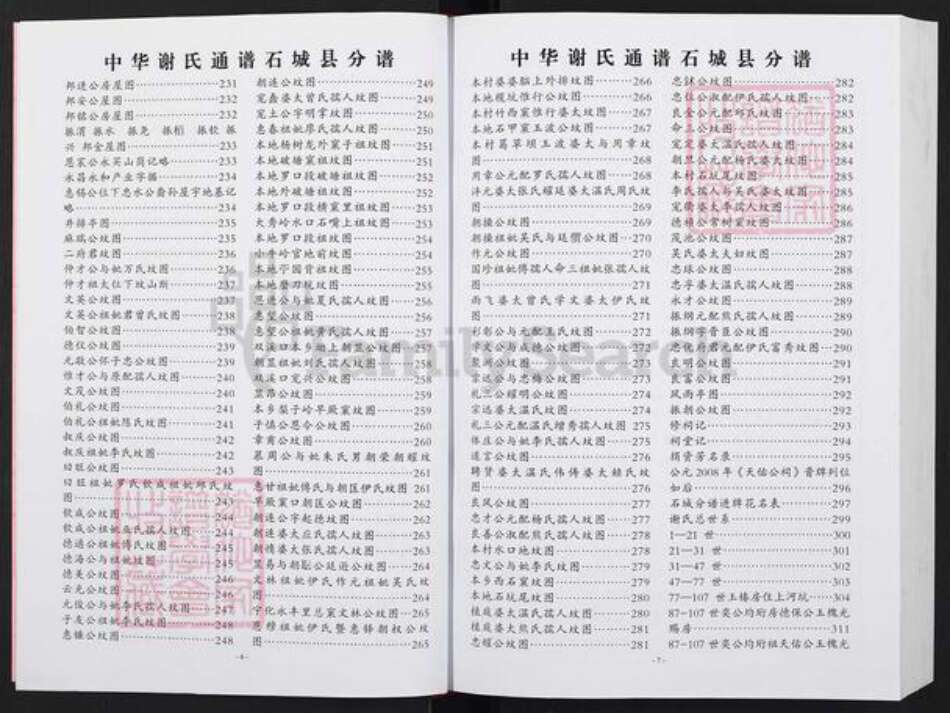 中华谢氏通谱石城县分谱
邦进公房屋图……231
邦安公屋图……232
邦铭公房屋图……232
兴 邦金屋图……233
恩宗公永买山岗记略……233
永昌永和产业字据……234
惠锡公位下忠水公裔孙屋宇地基记
略……234
井排亭图……235
麻瑞公坟图……235
二府君坟图……236
仲才公与妣万氏坟图……236
仲才祖太位下坟山图……237
文英公坟图……237
文英公祖妣君曾氏坟图……238
伯智公坟图……238
德仪公坟图……239
元敬公怀子忠公坟图……239
惟才公与原配孺人坟图……240
文茂公坟图……240
伯礼公坟图……241
伯礼公祖妣陈氏坟图……241
叔庆公坟图……242
叔庆祖妣李氏坟图……242
曰旺公坟图……243
曰旺祖妣罗氏钦成祖妣邱氏坟
图……243
钦成公坟图……244
德进公祖妣傅氏坟图……245
德海公与祖妣坟图……245
德美公坟图……246
云光公坟图……246
元俊公与妣李氏孺人坟图……247
子友公祖妣李氏坟图……248
惠锤公坟图……248
- 6 -
朝连公坟图……249
宽鑫婆太曾氏孺人坟图……249
宽土公字明字坟图……250
惠春祖妣廖氏孺人坟图……250
本地杨树龙外窠子祖坟图……251
本地破塘窠祖坟图……251
本地罗口段破塘祖坟图……252
本地外破塘祖坟图……252
本地罗口段横窠里祖坟图……253
大秀岭水口石嘴上祖坟图……253
本地罗口段祖坟图……254
小秀岭官地前坟图……254
本地宁国背祖坟图……255
本地磨刀坑坟图……255
恩进公与妣夏氏孺人坟图……256
惠望公坟图……256
惠望公祖妣黄氏孺人坟图……257
双溪口本乡轴上朝显公坟图……257
朝显祖妣刘氏孺人坟图……258
双溪口宽兴公坟图……258
显昂公坟图……259
本乡梨子岭早厥窠坟图……259
子慎公恩令公坟图……260
章甫公坟图……260
慕周公与妣朱氏男朝荣朝耀坟
图……261
惠甘祖妣傅氏与朝匡伊氏坟图 261
早厥窠口朝匡公坟图……262
朝连公字起德坟图……262
朝连婆太应氏孺人坟图……263
朝情婆太张氏孺人坟图……263
显易与朝聪公廷逊公坟图……264
文林祖妣伊氏作元祖妣吴氏坟
图……264
宁化水车里总窠文林公坟图……265
恩修祖妣伊氏暨惠铎朝权公坟
图……265
中华谢氏通谱石城县分谱
本村婆婆脑上外排坟图……266
本地榥坑惟行公坟图……266
本村竹西窠惟行婆太坟图……267
本地石甲窠玉波公坟图……267
本村葛草坝玉波婆太与周章坟
图……268
周章公元配罗氏孺人坟图……268
泮元婆太张氏耀廷婆太温氏周氏坟
图……269
朝操公坟图……269
朝操祖妣吴氏与廷僩公坟图……270
作元公坟图……270
国珍祖妣傅孺人命三祖妣张孺人坟
图……271
雨飞婆太曾氏学文婆太伊氏坟
图……271
彩彰公与元配王氏坟图……272
学文公与成德公坟图……272
聚湖公坟图……273
宗远公与忠梅公坟图……273
礼三公耀明公坟图……274
宗远婆太温氏坟图……274
礼三公元配温氏增秀孺人坟图 275
体庄公与妣李氏孺人坟图……275
道言公坟图……276
聘贤婆太温氏伟俦婆太赖氏坟
图……276
良风公坟图……277
忠才公元配杨氏孺人坟图……277
良善公淑配熊氏孺人坟图……278
本村水口地坟图……278
忠文公与妣李氏坟图……279
本乡西石窠坟图……279
本地石坑尾坟图……280
植庭婆太温氏孺人坟图……280
植庭婆太熊氏孺人坟图……281
忠耀公坟图……281
- 7 -
忠铽公坟图……282
忠位公淑配伊氏孺人坟图……282
良金公元配邱氏坟图……283
命三公坟图……283
宽定婆太温氏孺人坟图……284
朝显公元配杨氏婆太坟图……284
本村石坑尾坟图……285
李氏孺人与吴氏婆太坟图……285
宽衢婆太李孺人坟图……286
德祯公常树窠坟图……286
茂池公坟图……287
吴氏婆太夫妇坟图……287
忠球公坟图……288
忠孚婆太温氏孺人坟图……288
永才公坟图……289
振纲元配熊氏孺人坟图……289
振纲字晋臣公坟图……290
忠优府君元配伊氏富秀坟图……290
良明公坟图……291
良富公坟图……291
风雨亭图……292
振朝公坟图……292
修祠记……293
祠堂记……294
捐资芳名录……295
公元2008年《天佑公祠》晋牌列位
如后……296
石城分谱进牌花名表……297
谢氏总世系……299
1—21 世……300
21—31 世……301
31—47 世……302
47—77 世……303
77—107 世玉倚房住上河坑……304
87-107 世奕公均珩房德保公玉槐光
赐房……311
87-107 世奕公均珩祖天佑公玉槐光